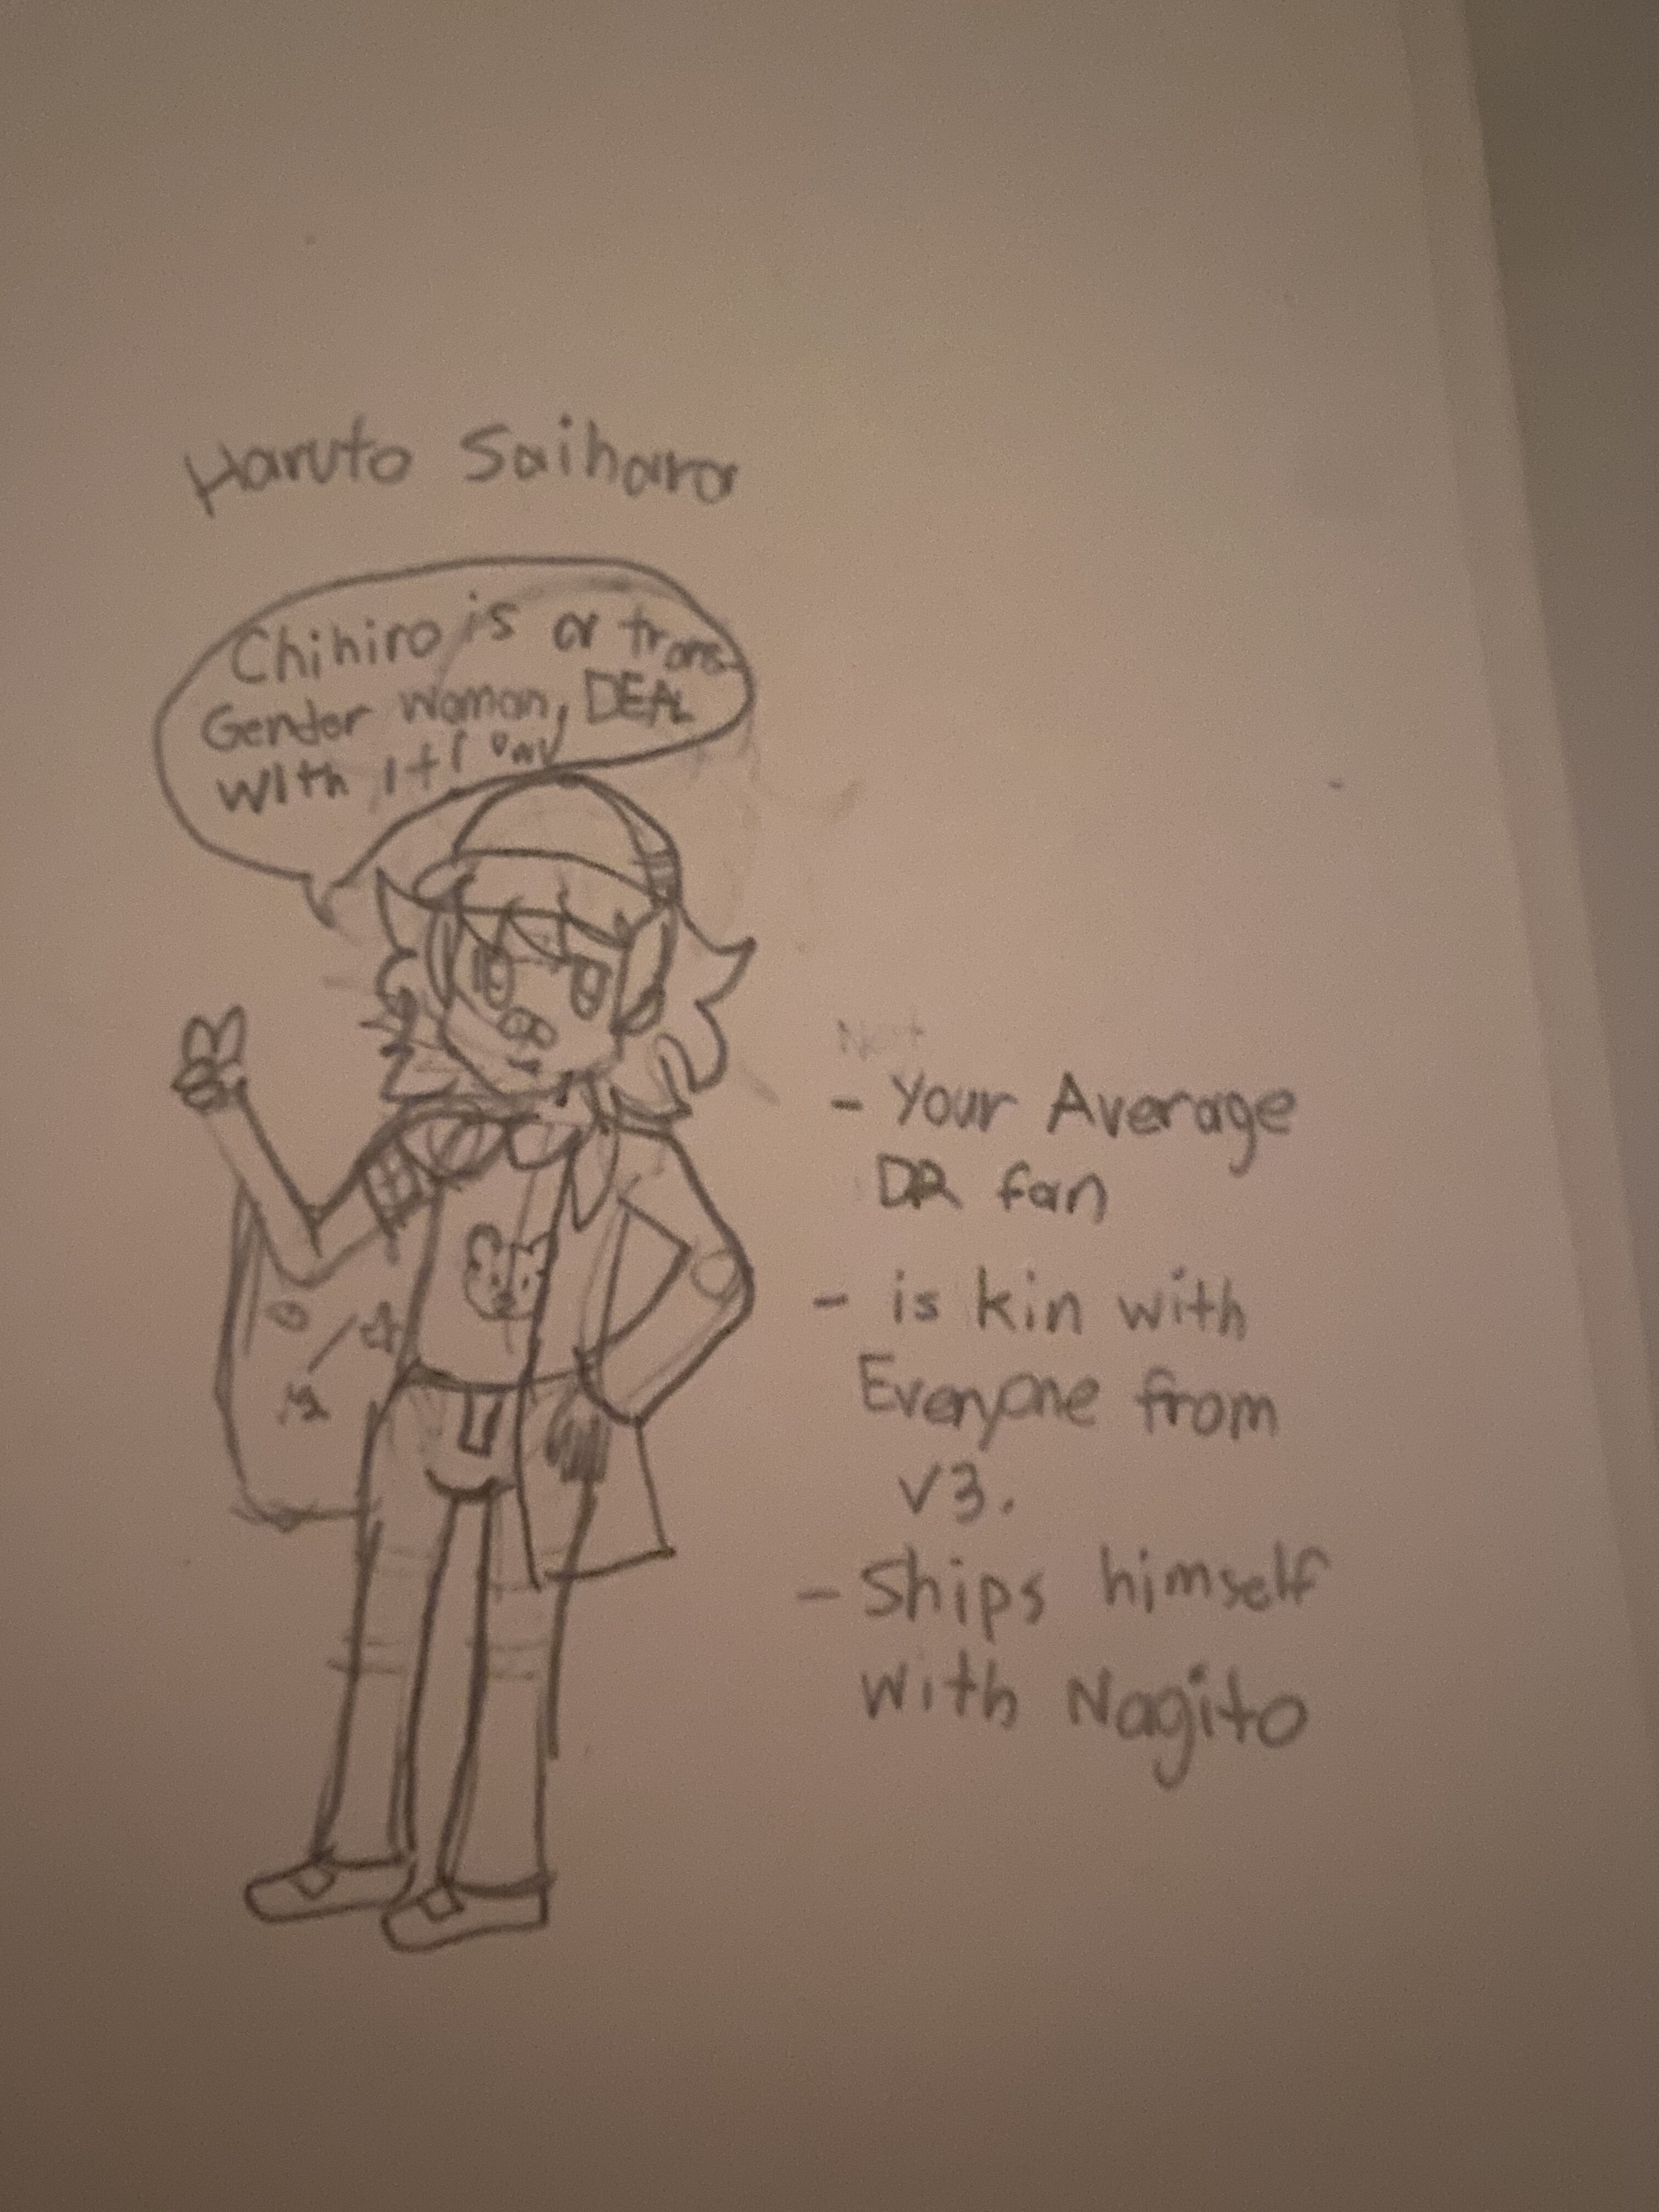 Haruto Saihara
Chihiro is a trans-
Gender woman, DEAL
with it!
Not
- Your Average
DR fan
- is kin with
Everyone from
V3.
- Ships himself
with Nagito